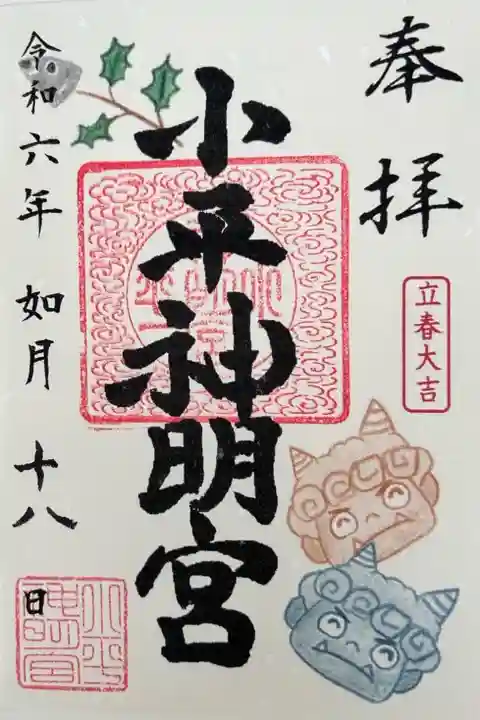 奉拝
立春大吉
小平神明宮
令和六年 如月 十八日